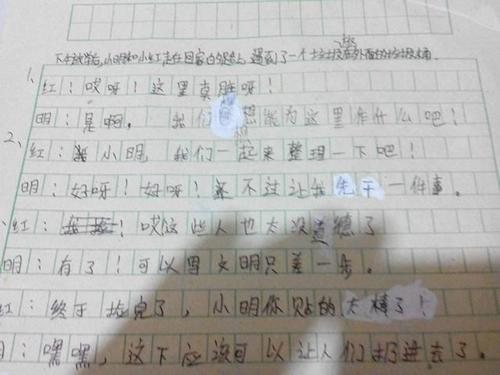 下午放学后,小明和小红走在回家的路上,遇到了一个垃圾在外面的垃圾桶
1、红:哎呀!这里真脏呀!
明:是啊。我们想能为这里做什么吧!
2、红:小明 我们一起来整理一下吧!
明:好呀!好呀!不过让我先干一件事。
红:哎这些人也太没道德了
明:有了!可以写文明只差一步。
红:终于捡完了,小明你贴的太棒了!
明:嘿嘿,这下应该可以让人们扔进去了。